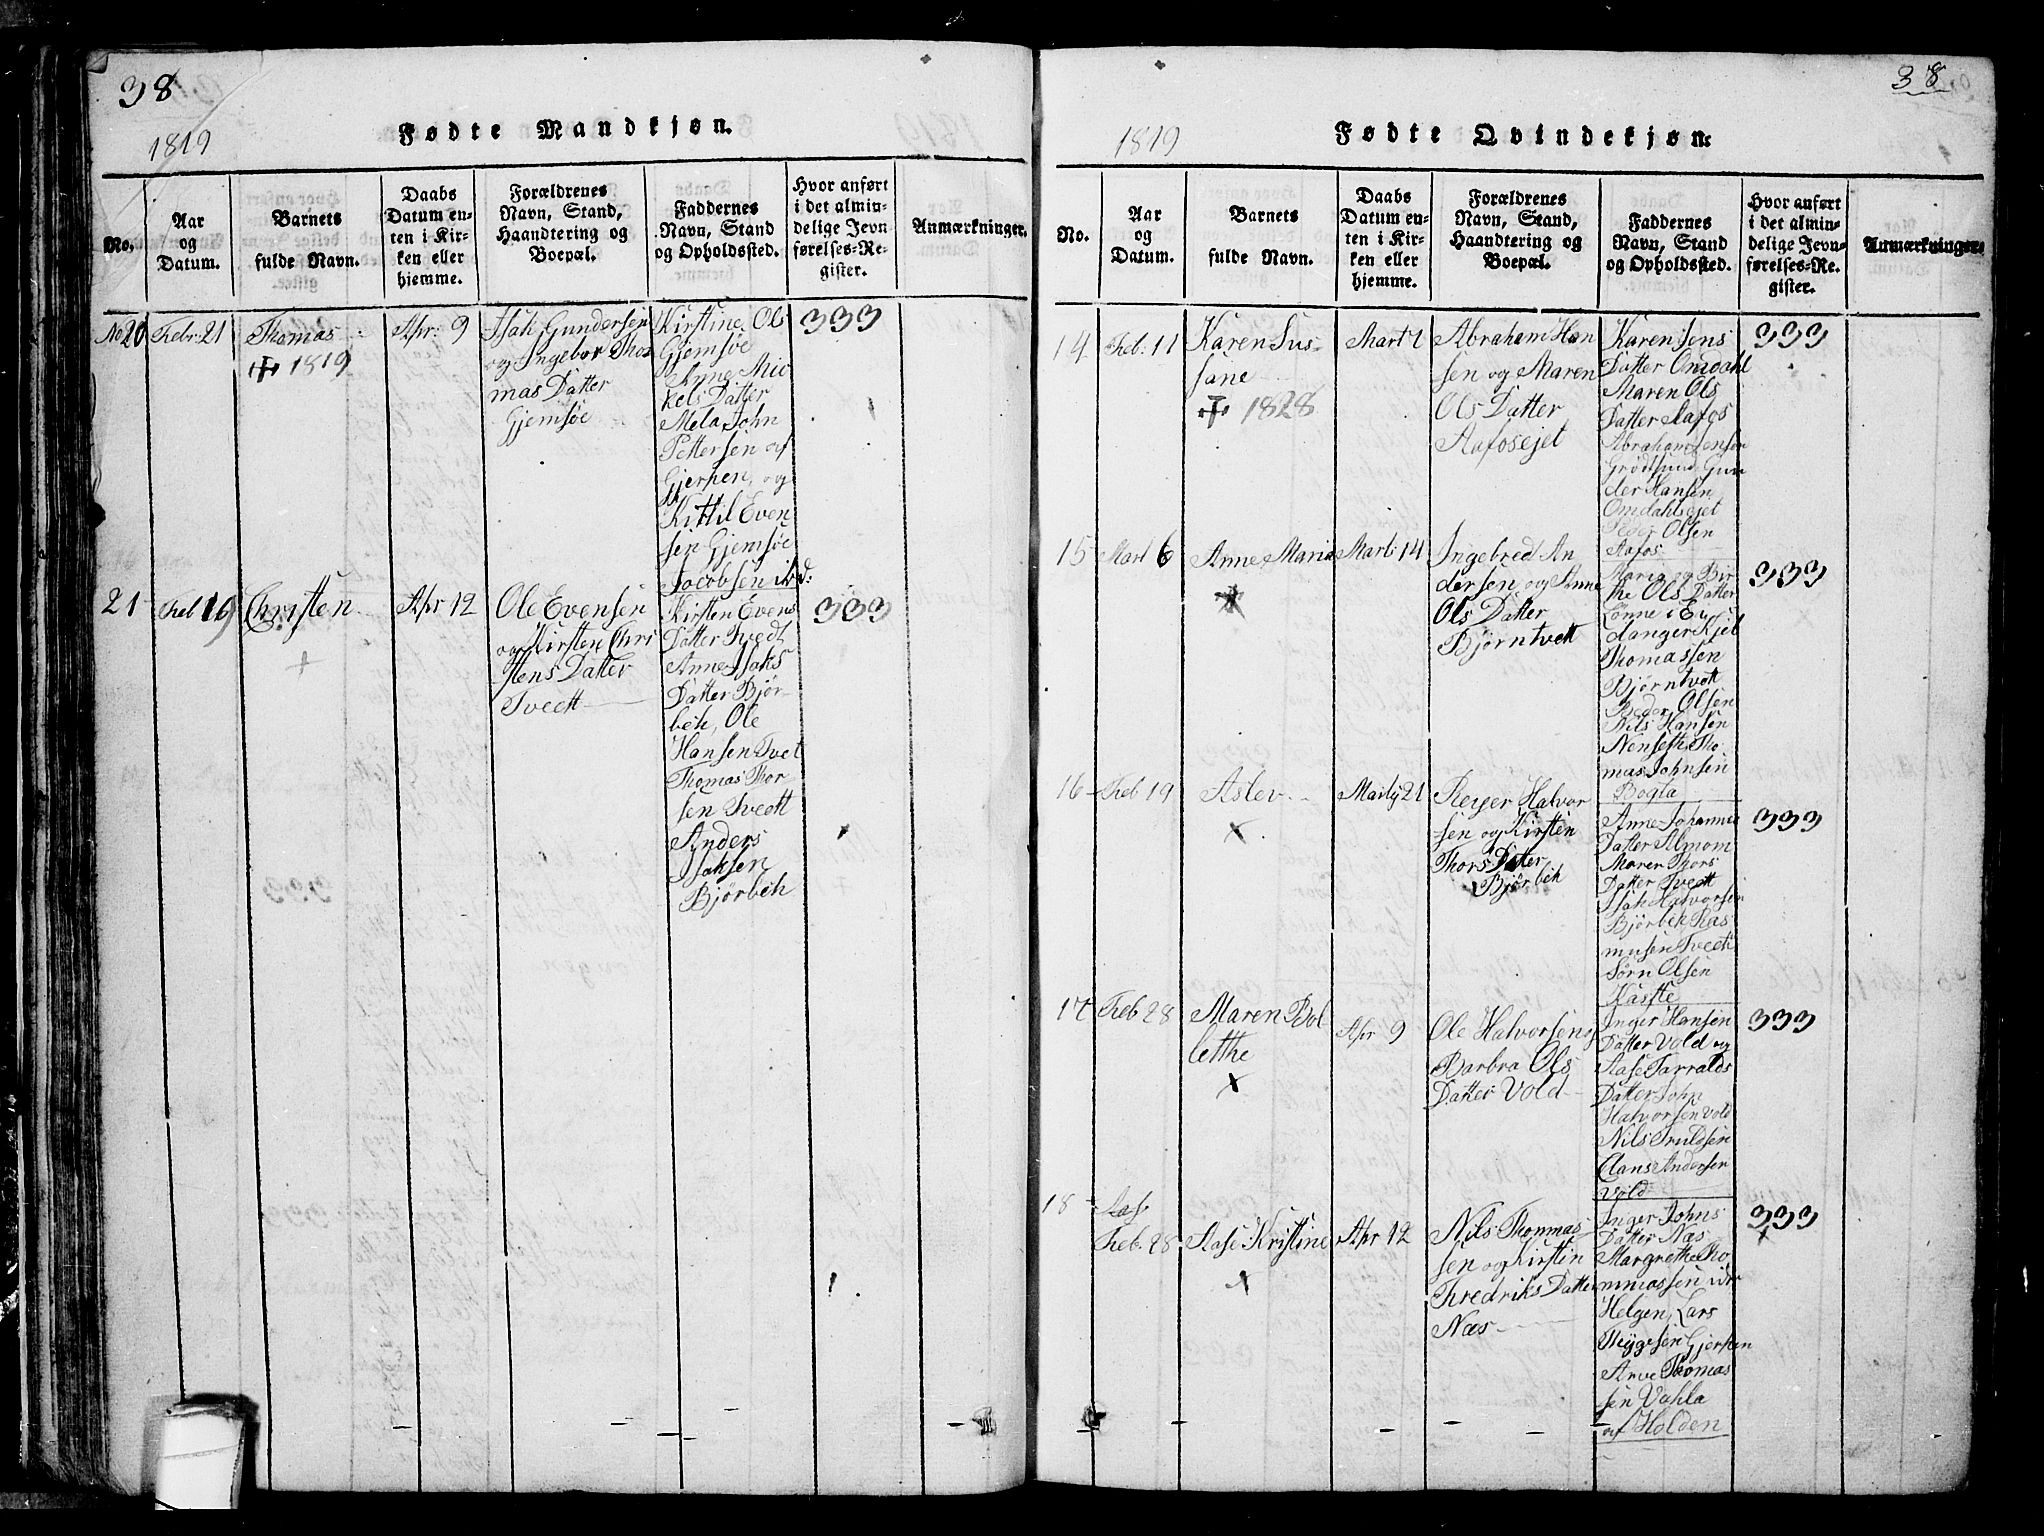 38
1819
Fødte Mandkjøn.
No.
Aar
og
Datum.
Barnets
fulde Navn.
Daabs
Datum en-
ten i Kir-
ken eller
hjemme.
Forældrenes
Navn, Stand,
Haandtering og
Boepæl.
Faddernes
Navn, Stand
og Opholdssted.
Hvor anført
i det almin-
delige Jevn
førelses-Re-
gister.
Anmærkninger.
No 20
Febr: 21
Thomas
1819
Apr: 9
Isak Gundersen
og Ingebor Tho
mas Datter
Gjemsøe
Kirstine Ols
Gjemsøe
Anne Mic
kels Datter
Mela John
Pettersen af
Gjerpen, og
Kittil Even
sen Gjemsøe
Jacobsen ibd:
333
21
Feb 19
Christen
+
Apr 12
Ole Evensen
og Kirsten Chri
stens Datter
Tvedt
Kirsten Evens
Datter Tvedt
Anne Isaks
Datter Bjør-
bek, Ole
Hansen Tvet
Thomas Thor
sen Tvedt
Anders
Isaksen
Bjørbek
333
38
1819
Fødte Qvindekjøn.
No.
Aar
og
Datum.
Barnets
fulde Navn.
Daabs
Datum en-
ten i Kir-
ken eller
hjemme.
Forældrenes
Navn, Stand,
Haandtering og
Boepæl.
Faddernes
Navn, Stand
og Opholdssted.
Hvor anført
i det almin-
delige Jevn-
førelses-Re-
gister.
Anmærkninger.
14
Feb: 11
Karen Sus-
sane
1828
Mart 7
Abraham Han
sen og Maren
Ols Datter
Aafosejet
Karen Jens
Datter Omdahl
Maren Ols
Datter Aafos
Abraham Jensen
Grødsund Gun
der Hansen
Omdahlsejet
Peder Olsen
Aafos
333
15
Mart 6
Anne Maria
Mart: 14
Ingebred An
dersen og Anne
Ols Datter
Bjørntvett
Maria og Bir
the Ols Datter
Lønne i Ei
danger Kjel
Thomassen
Bjørntvett
Peder Olsen
Nils Hansen
Nenseth Tho
mas Johnsen
Bogla
333
16
Feb 19
Aslev
x
Martij 21
Reyer Halvor
sen og Kirsten
Thors Datter
Bjørbek
Anne Johannes
Datter Almom
Maren Thors
Datter Tvedt
Isak Halvorsen
Bjørbek Ras
musen Tvedt
Sørn Olsen
Kaste
333
17
Feb 28
Maren Bol
lethe
x
Apr 9
Ole Halvorsen og
Barbra Ols
Datter Vold
Inger Hansen
Datter Vold og
Aase Tarralds
Datter John
Halvorsen Vold
Nils Truldsen
Clans Andersen
Vold
333
18
Aase
Feb. 28
Aase Kristine
x
Apr 12
Nils Thommas
sen og Kirsten
Fredriks Datter
Næs
Inger Johns
Datter Næs
Margrethe Tho
mmassen
Helgen, Lars
Heygesen Gjerpen
Arve Thomas
sen Vahla
af Holden
333
x